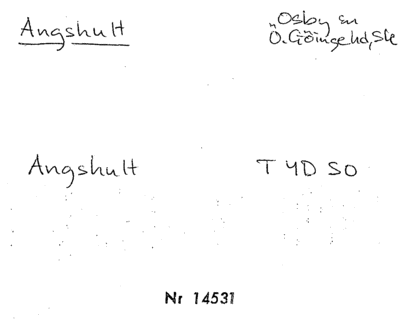 Angshult
Osby sn
Ö. Göinge hd, Sk
Angshult T YD SO
Nr 14531